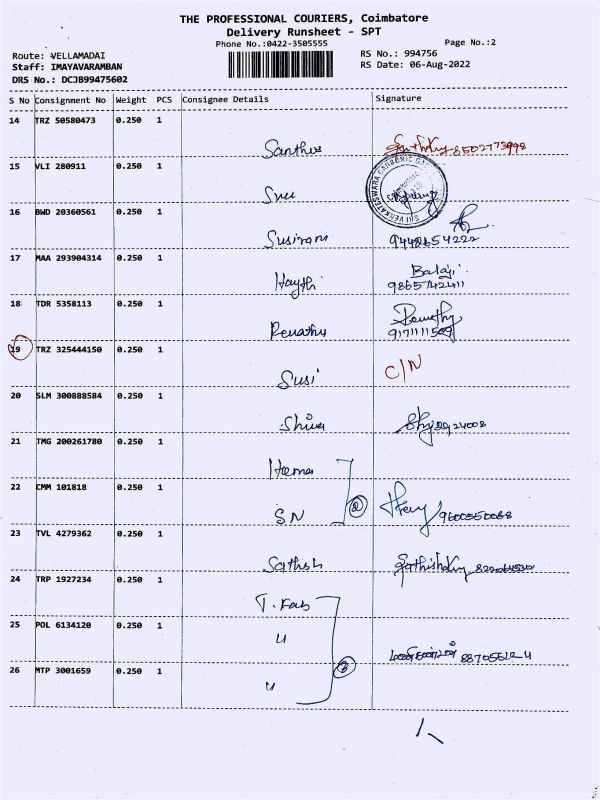 THE PROFESSIONAL COURIERS, Coimbatore
Delivery Runsheet - SPT
Phone No.:0422-3505555
Page No.:2
Route: VELLAMADAI
RS No.: 994756
Staff: IMAYAVARAMBAN
RS Date: 06-Aug-2022
DRS No.: DCJB99475602
S No Consignment No Weight PCS Consignee Details Signature
14 TRZ 50580473 0.250 1
15 VLI 280911 0.250 1
SRI VENKATESWARA CARBONIC
16 BWD 20360561 0.250 1
Susiram
17 MAA 293904314 0.250 1
Balaji
18 TDR 5358113 0.250 1
19 TRZ 325444150 0.250 1
Susi C/N
20 SLM 300888584 0.250 1
Shiva
21 TMG 200261780 0.250 1
Hema
22 CMM 101818 0.250 1
SN 2
23 TVL 4279362 0.250 1
Sathish
24 TRP 1927234 0.250 1
T. Fab
25 POL 6134120 0.250 1
26 MTP 3001659 0.250 1